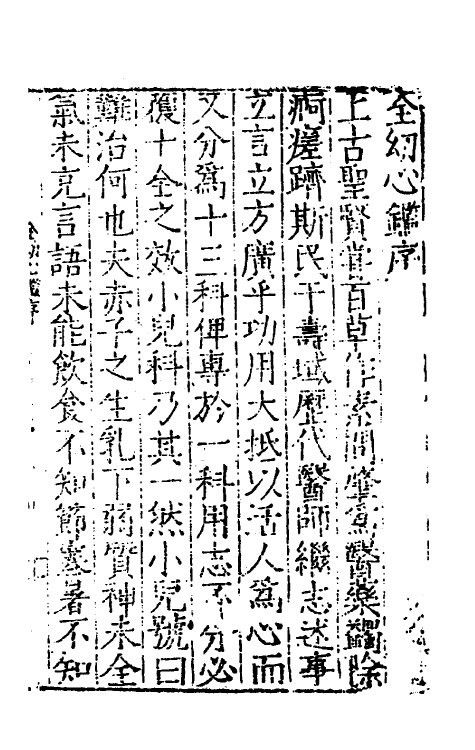 全幼心鑑序
上古聖賢嘗百草作素問肇爲醫藥蠲除
痾瘥躋斯民于壽域歷代醫師繼志述事
立言立方廣乎功用大抵以活人爲心而
又分爲十三科俾專於一科用志不分必
獲十全之效小兒科乃其一然小兒號曰
難治何也夫赤子之生乳下弱質神未全
氣未充言語未能飲食不知節寒暑不知
全幼心鑑序